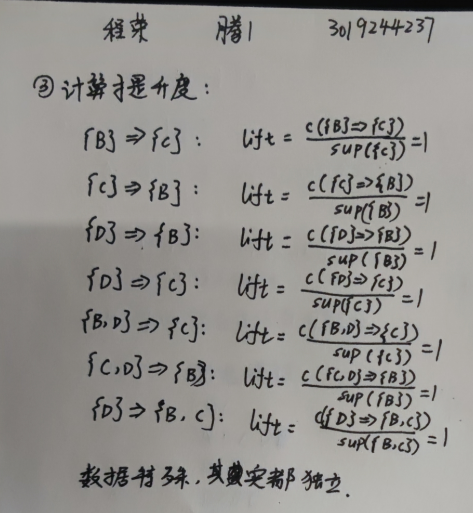 程荣 腾1 3019244237
③计算提升度:
{B} ⇒ {C}: lift = c({B}⇒{C}) / sup({C}) = 1
{C} ⇒ {B}: lift = c({C}⇒{B}) / sup({B}) = 1
{D} ⇒ {B}: lift = c({D}⇒{B}) / sup({B}) = 1
{D} ⇒ {C}: lift = c({D}⇒{C}) / sup({C}) = 1
{B,D} ⇒ {C}: lift = c({B,D}⇒{C}) / sup({C}) = 1
{C,D} ⇒ {B}: lift = c({C,D}⇒{B}) / sup({B}) = 1
{D} ⇒ {B,C}: lift = c({D}⇒{B,C}) / sup({B,C}) = 1
数据特殊,其实都独立.